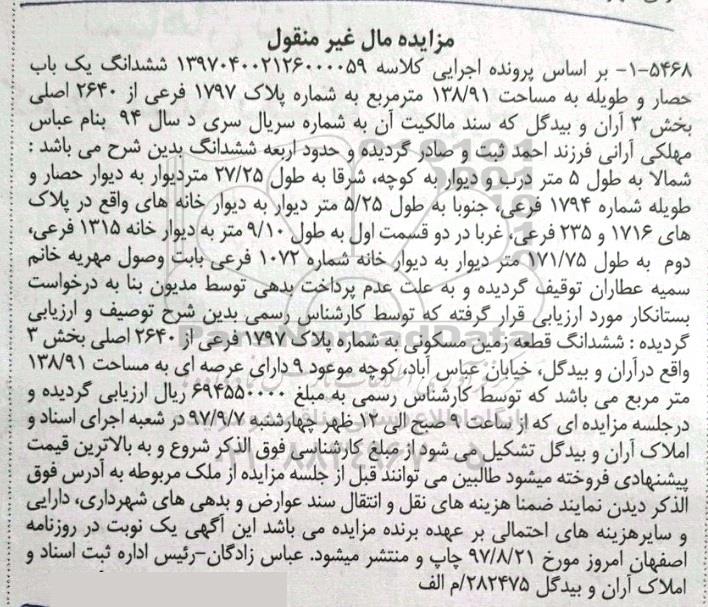 مزایده مال غیر منقول
۱-۵۴۶۸- بر اساس پرونده اجرایی کلاسه ۱۳۹۷۰۴۰۰۲۱۲۶۰۰۰۰۵۹ ششدانگ یک باب
حصار و طویله به مساحت ۱۳۸/۹۱ مترمربع به شماره پلاک ۱۷۹۷ فرعی از ۲۶۴۰ اصلی
بخش ۳ آران و بیدگل که سند مالکیت آن به شماره سریال سری د سال ۹۴ بنام عباس
مهلکی آرانی فرزند احمد ثبت و صادر گردیده و حدود اربعه ششدانگ بدین شرح می باشد :
شمالا به طول ۵ متر درب و دیوار به کوچه، شرقا به طول ۲۷/۲۵ متردیوار به دیوار حصار و
طویله شماره ۱۷۹۴ فرعی، جنوبا به طول ۵/۲۵ متر دیوار به دیوار خانه های واقع در پلاک
های ۱۷۱۶ و ۲۳۵ فرعی، غربا در دو قسمت اول به طول ۹/۱۰ متر به دیوار خانه ۱۳۱۵ فرعی،
دوم به طول ۱۷۱/۷۵ متر دیوار به دیوار خانه شماره ۱۰۷۲ فرعی بابت وصول مهریه خانم
سمیه عطاران توقیف گردیده و به علت عدم پرداخت بدهی توسط مدیون بنا به درخواست
بستانکار مورد ارزیابی قرار گرفته که توسط کارشناس رسمی بدین شرح توصیف و ارزیابی
گردیده : ششدانگ قطعه زمین مسکونی به شماره پلاک ۱۷۹۷ فرعی از ۲۶۴۰ اصلی بخش ۳
واقع درآران و بیدگل، خیابان عباس آباد، کوچه موعود ۹ دارای عرصه ای به مساحت ۱۳۸/۹۱
متر مربع می باشد که توسط کارشناس رسمی به مبلغ ۶۹۴۵۵۰۰۰۰ ریال ارزیابی گردیده و
درجلسه مزایده ای که از ساعت ۹ صبح الی ۱۲ ظهر چهارشنبه ۹۷/۹/۷ در شعبه اجرای اسناد و
املاک آران و بیدگل تشکیل می شود از مبلغ کارشناسی فوق الذکر شروع و به بالاترین قیمت
پیشنهادی فروخته میشود طالبین می توانند قبل از جلسه مزایده از ملک مربوطه به آدرس فوق
الذکر دیدن نمایند ضمنا هزینه های نقل و انتقال سند عوارض و بدهی های شهرداری، دارایی
و سایرهزینه های احتمالی بر عهده برنده مزایده می باشد این آگهی یک نوبت در روزنامه
اصفهان امروز مورخ ۹۷/۸/۲۱ چاپ و منتشر میشود. عباس زادگان-رئیس اداره ثبت اسناد و
املاک آران و بیدگل ۲۸۲۴۷۵/م الف